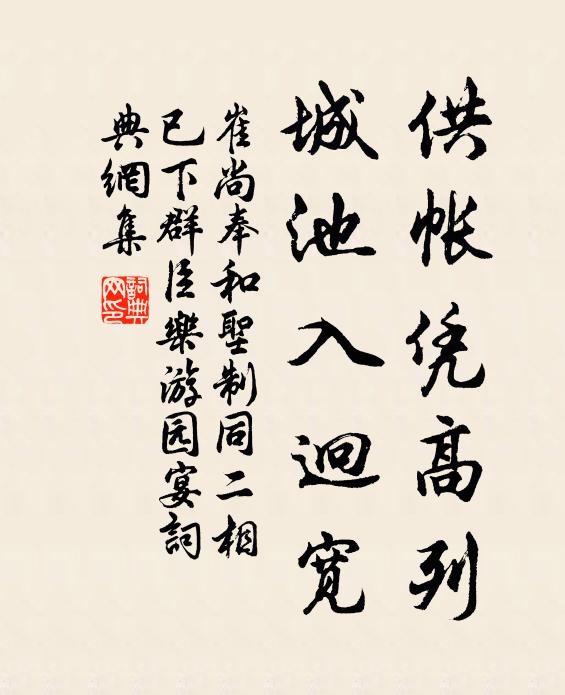 供帐凭高列
城池入迥宽
崔尚奉和聖制同二相
已下群臣樂游园宴詞
典網集
詞典网印